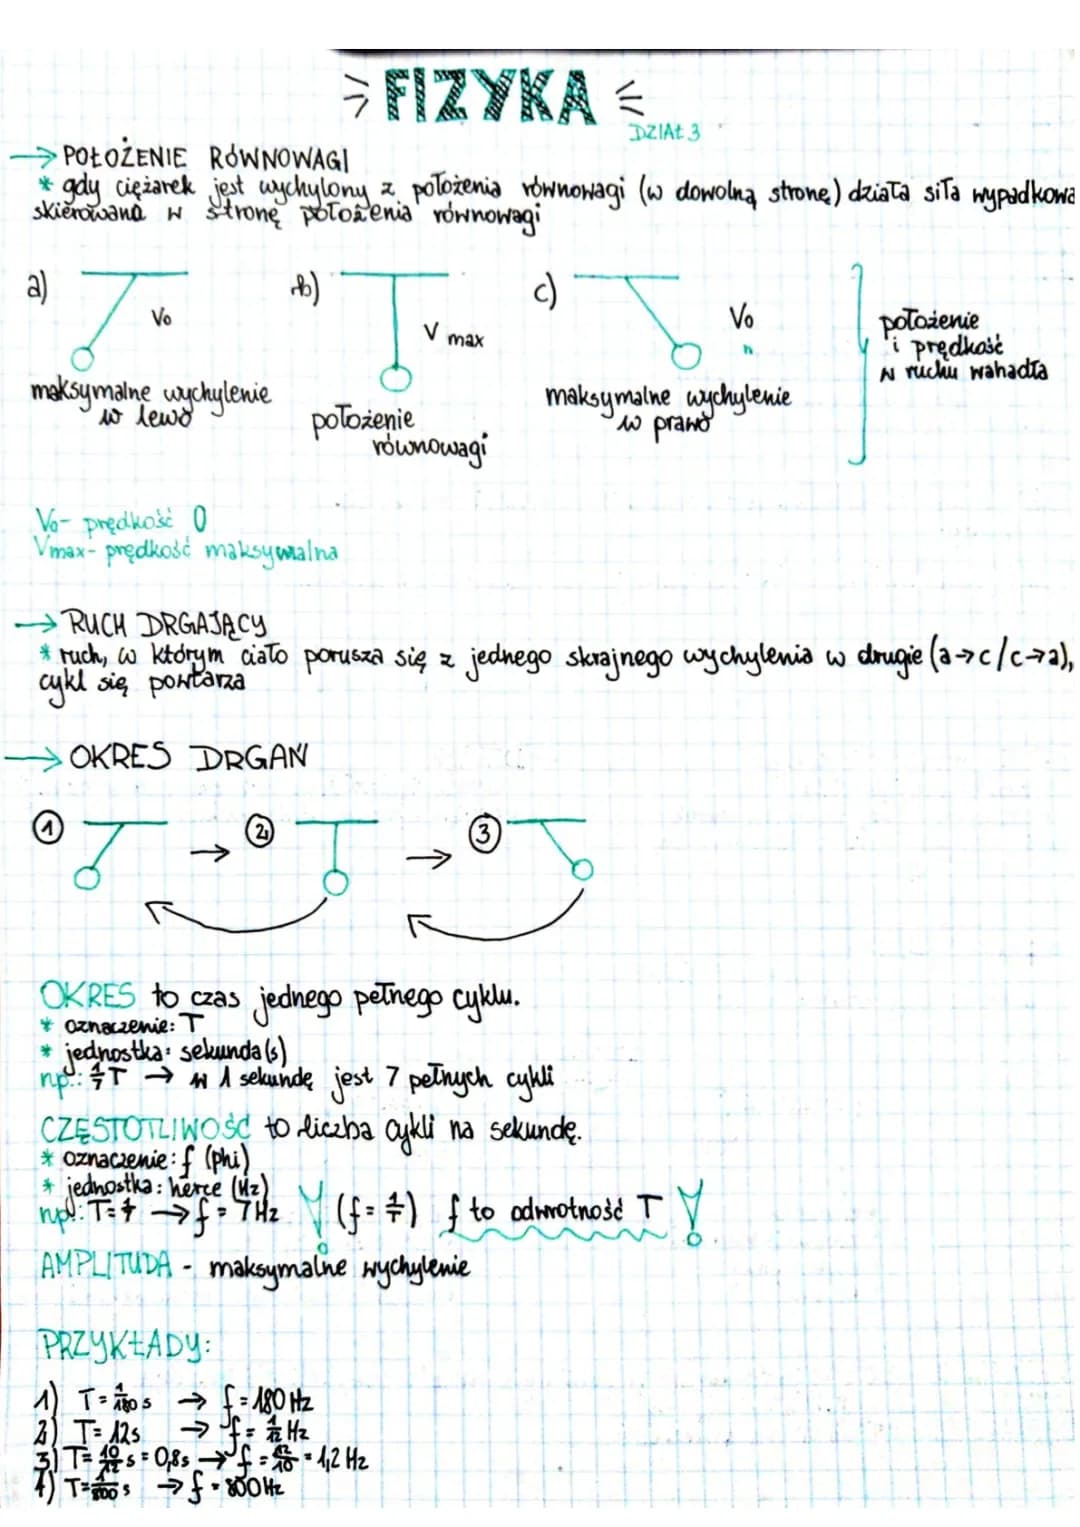 FIZYKA
DZIAŁ 3
→ POŁOŻENIE RÓWNOWAGI
* gdy ciężarek jest wychylony z położenia równowagi (w dowolną stronę) działa siła wypadkowa
skierowana w stronę położenia równowagi
a)
V₀
maksymalne wychylenie
w lewo
b)
V max
położenie
równowagi
c)
V₀
maksymalne wychylenie
w prawo
położenie
i prędkość
w ruchu wahadła
V₀- prędkość 0
Vmax- prędkość maksymalna
→ RUCH DRGAJĄCY
* ruch, w którym ciało porusza się z jednego skrajnego wychylenia w drugie (a→c/c→a),
cykl się powtarza
→ OKRES DRGAŃ
1 → 2 → 3
OKRES to czas jednego pełnego cyklu.
* oznaczenie: T
* jednostka: sekunda (s)
np.: 1/7 T → w 1 sekundę jest 7 pełnych cykli
CZĘSTOTLIWOŚĆ to liczba cykli na sekundę.
* oznaczenie: f (phi)
* jednostka: herce (Hz)
np.: T=1/7 → f = 7Hz (f = 1/T) f to odwrotność T
AMPLITUDA - maksymalne wychylenie
PRZYKŁADY:
1) T = 1/180 s → f = 180 Hz
2) T = 12s → f = 1/12 Hz
3) T = 10/12 s = 0,8s → f = 12/10 = 1,2 Hz
4) T = 1/800 s → f = 800 Hz